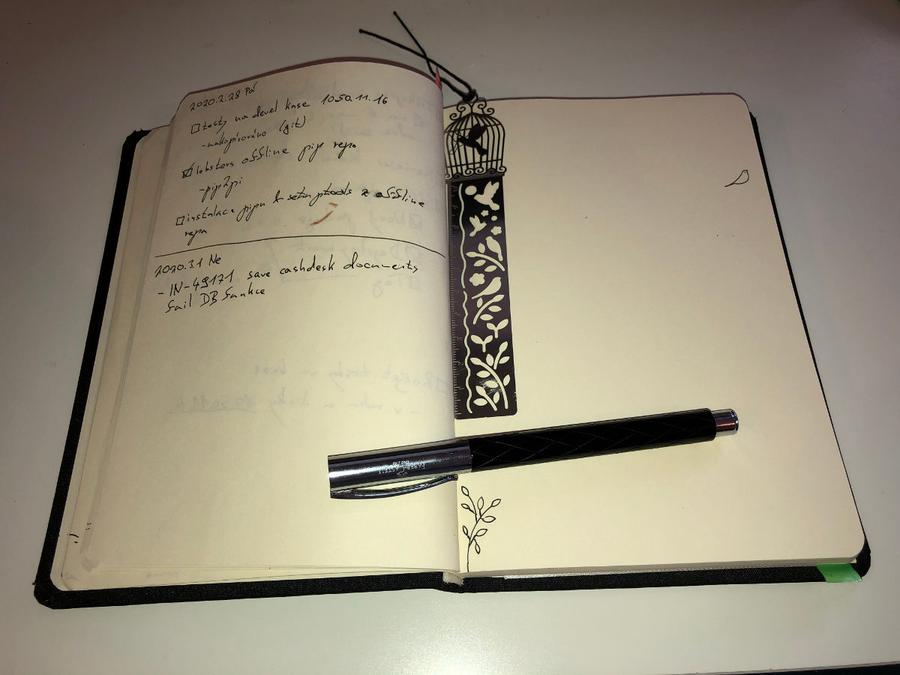 2020.2.28 Pá
☐ testy na devel kase 1050.11.16
- nakopírováno (git)
☑ offline pip repo
- pip2pi
☐ instalace pipu & setuptools z offline
repa
2020.3.1 Ne
- IN-49171 save cashdesk documents
fail DB funkce